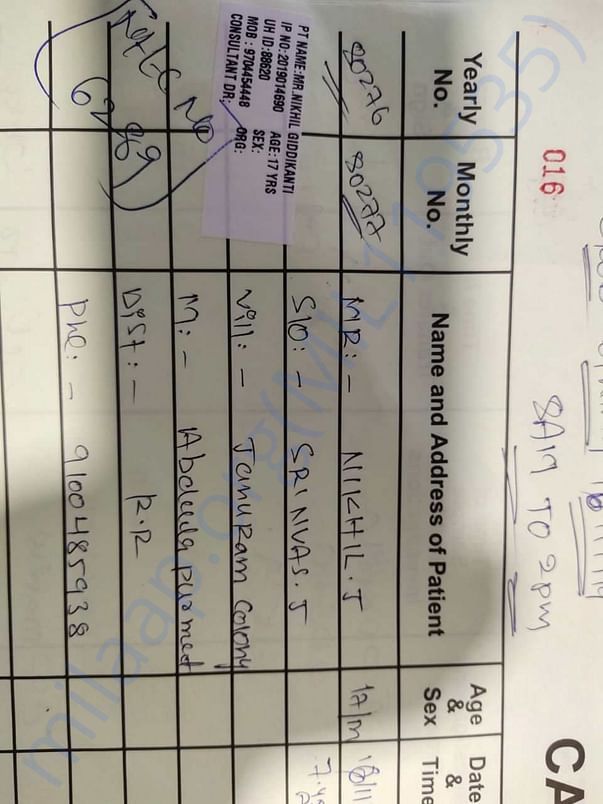 016
8AM TO 2pm
CA
Yearly No.
Monthly No.
Name and Address of Patient
Age & Sex
Date & Time
80276
80277
MR:- NIKHIL.J
17/m
18/11
S/o:- SRINVAS.J
Vill:- Janukam Colony
M:- Abdulla purmet
Dist:- R.R
Phe:- 9100485938
PT NAME:MR.NIKHIL GIDDIKANTI
IP NO:2019014690 AGE:17 YRS
UH ID:88620 SEX:
MOB : 9704454448 ORG:
CONSULTANT DR:
No
6289
milaap.org(MIL119535)